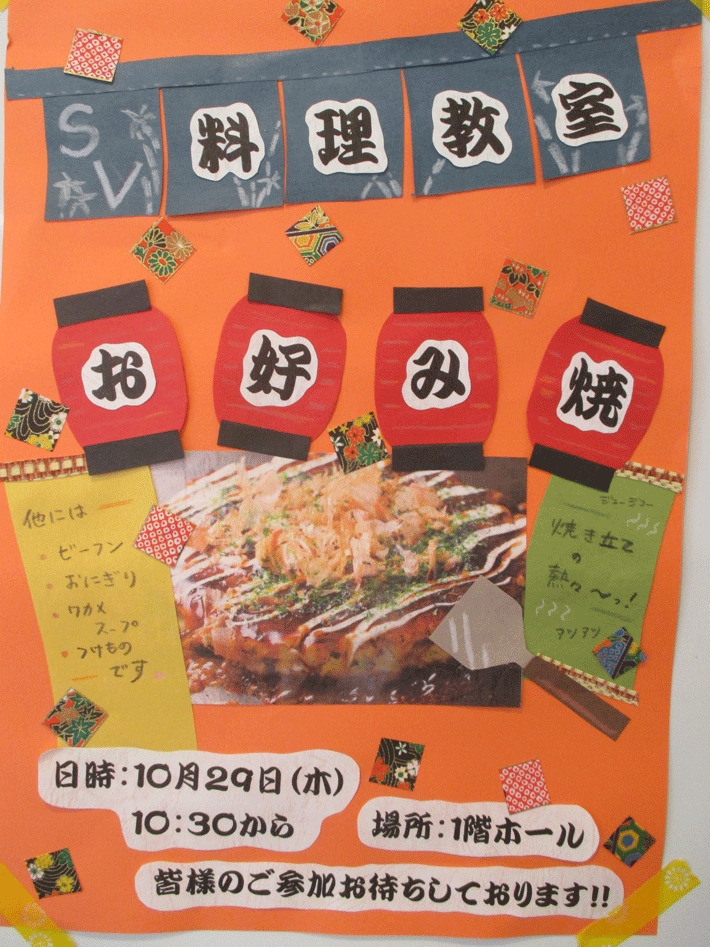 SV 料理教室
お好み焼
他には
・ビーフン
・おにぎり
・ワカメ
スープ
・つけもの
です
ジュージュー
焼き立て
の
熱々〜っ!
アツアツ
日時：10月29日（木）
10：30から
場所：1階ホール
皆様のご参加お待ちしております!!